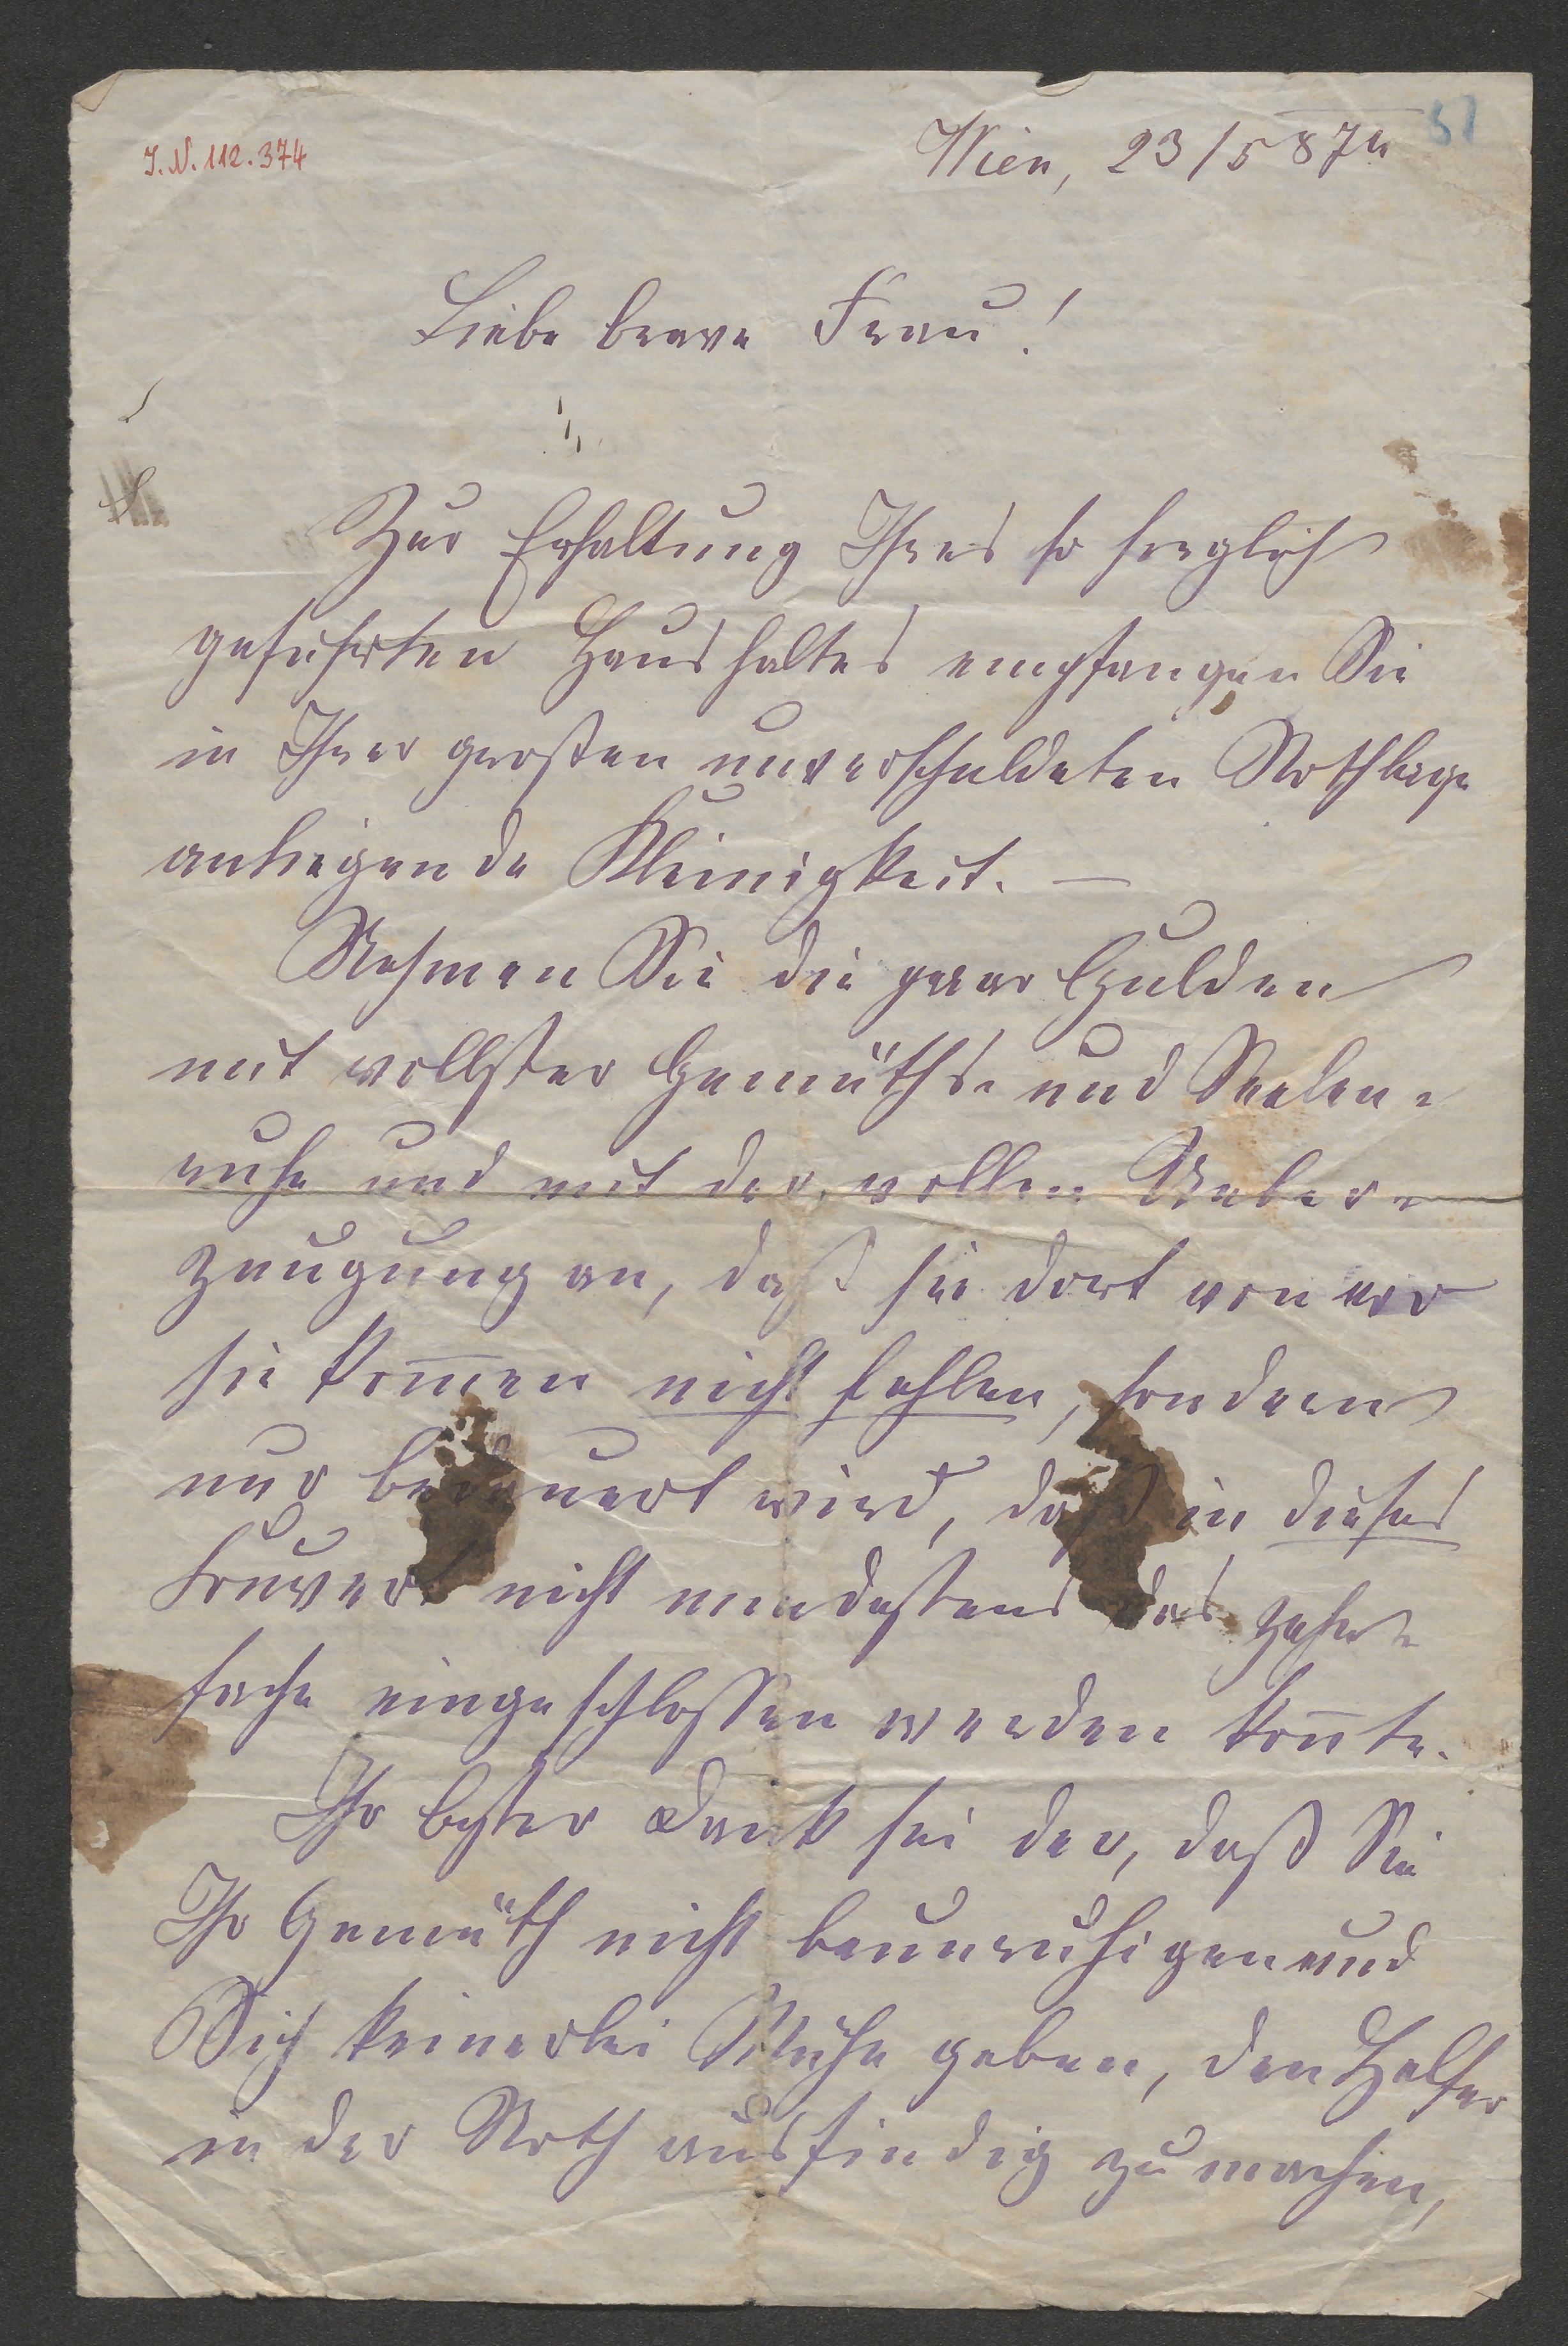 I.N. 112.374
Wien, 23/5 87
Liebe brave Frau!
Zur Erhaltung Ihres so sorglich
geführten Haushaltes empfangen Sie
in Ihrer großen unverschuldeten Nothlage
anliegende Kleinigkeit. —
Nehmen Sie die paar Gulden
mit vollster Gemüths- und Seelen-
ruhe und mit der vollen Ueber-
zeugung an, daß sie dort von wo
sie kom̅en nicht fehlen, sondern
nur bedauert wird, daß in dieses
Couvert nicht mindestens das zehn-
fache eingeschlossen werden kon̅te.
Ihr bester Dank sei der, daß Sie
Ihr Gemüth nicht beunruhigen und
Sich keinerlei Mühe geben, den Helfer
in der Noth ausfindig zu machen,